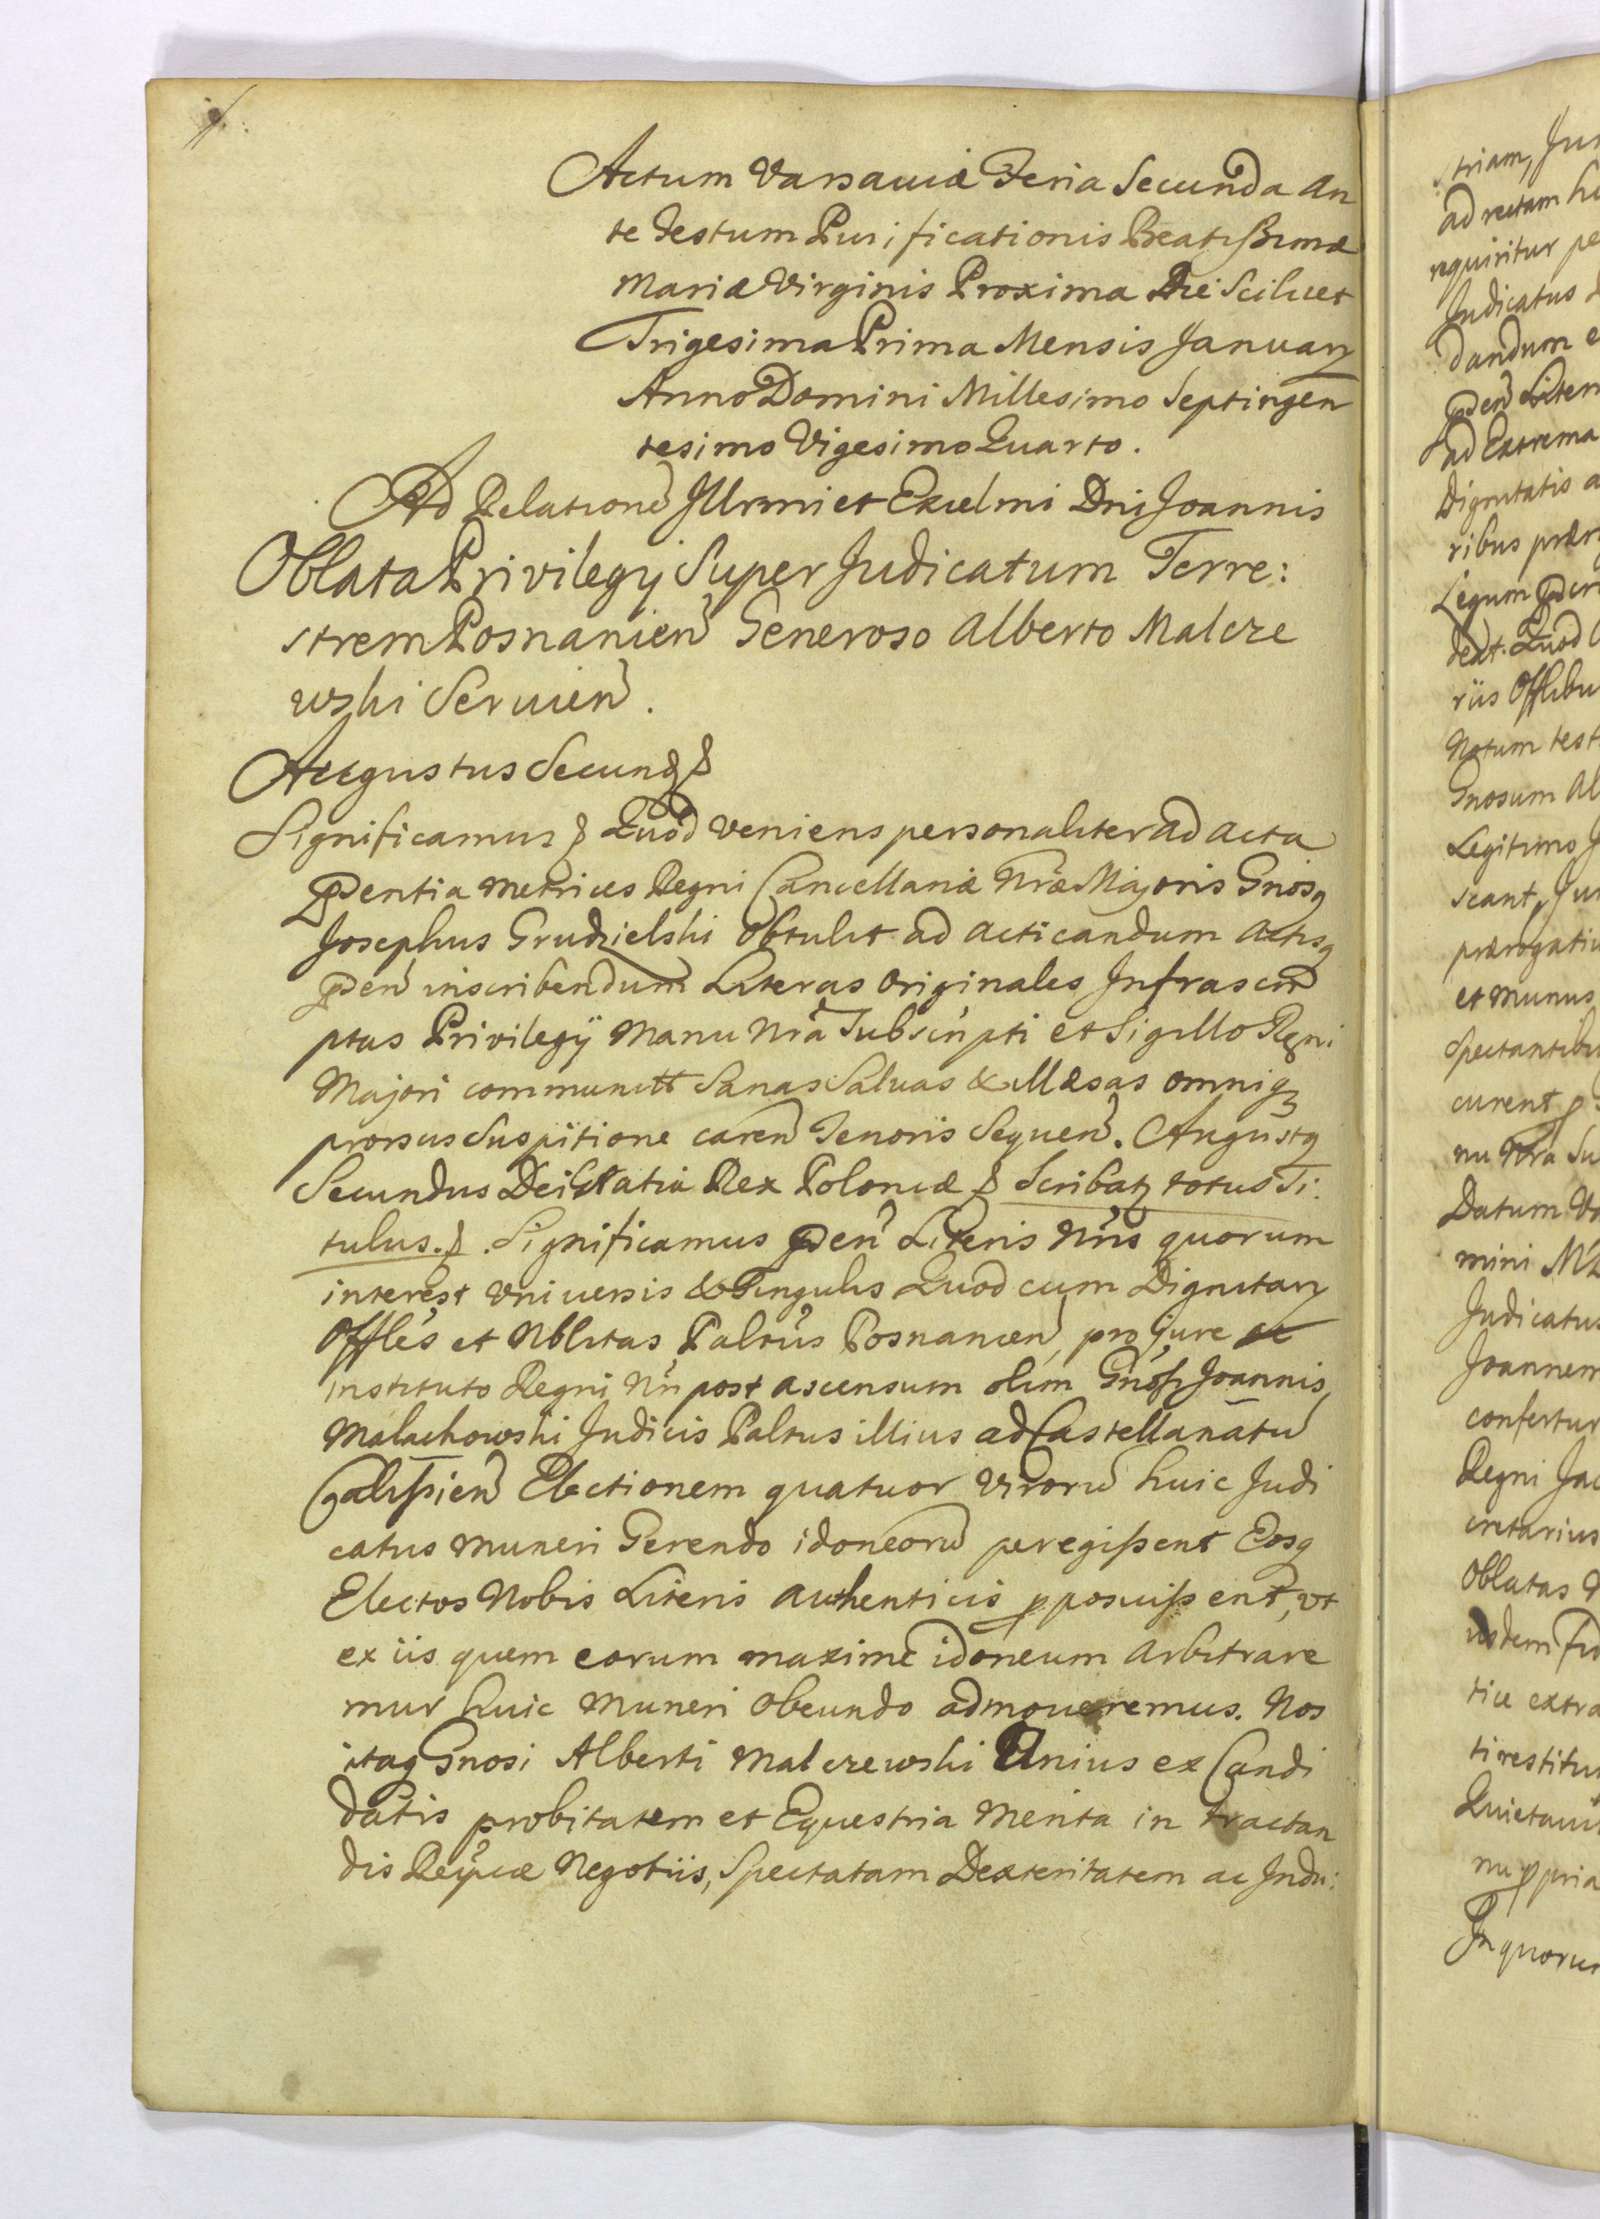 Actum Varsaviæ Feria Secunda An
te Festum Purificationis Beatissimæ
Mariæ Virginis Proxima Die Scilicet
Trigesima Prima Mensis Januarij
Anno Domini Millesimo Septingen
tesimo Vigesimo Quarto.
Ad Relationē Illrmi et Excelmi Dni Joannis
Oblata Privilegij Super Judicatum Terre:
strem Posnanień Generoso Alberto Malcze
wski Servień.
Augustus Secundꝯ &
Significamus & Quod veniens personaliter ad acta
pñtia Metrices Regni Cancellariæ Nræ Majoris Gnosꝯ
Josephus Grudzielski obtulit ad acticandum actisq
pñ inscribendum Literas Originales Infrascri
ptas Privilegij Manu Nrâ Subscripti et Sigillo Regni
Majori communitt Sanas Salvas & illæsas omniqꝫ
prorsus Suspitione careñ Tenoris Sequeñ. Augustꝯ
Secundus Dei Gratia Rex Poloniæ & Scribatr totus Ti:
tulus. &. Significamus pñ Literis Nris quorum
interest Universis & Singulis Quod cum Dignitarij
Offles et Nblitas Paltus Posnanień, pro jure et
instituto Regni Nri post ascensum olim Gnosi Joannis
Malachowski Judicis Paltus illius ad Castellanatū
Calissień Electionem quatuor Virorū huic Judi
catus muneri Gerendo idoneorū peregissent Eosq
Electos Nobis Literis authenticis pposuissent, ut
ex iis quem eorum maxime idoneum arbitrare
mur huic muneri obeundo admoveremus. Nos
itaq Gnosi Alberti Malczewski Unius ex Candi
datis probitatem et Equestria Merita in tractan
dis Reipcæ Negotiis, Spectatam Dexteritatem ac Indu:
striam, Jur
ad rectam
requiritur pe
Judicatus
dandum e
pñ Liter
ad Extrema
Dignitatis a
ribus prær
Legum
deat. Quod
riis Offlibu
Notum test
Gnosum Al
Legitimo J
scant, Jur
prærogativ
et munus
Spectantibu
curent, p
nu Nrâ Su
Datum Va
mini M
Judicatus
Joannem
confertur
Regni Jac
cretarius
Oblatas
iisdem
tice extra
ti restitu
Quietavit
nu ppria
In quorum